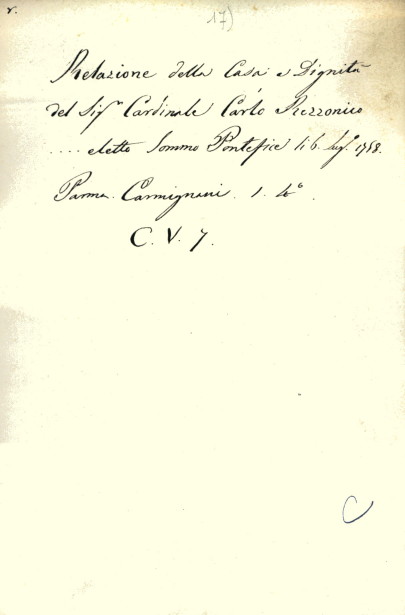 r.
17)
Relazione della Casa e Dignità
del Sig.r Cardinale Carlo Rezzonico
.... eletto Sommo Pontefice li 6. lug.o 1758.
Parma. Carmignani. 1. 4.o
C. V. 7.
C